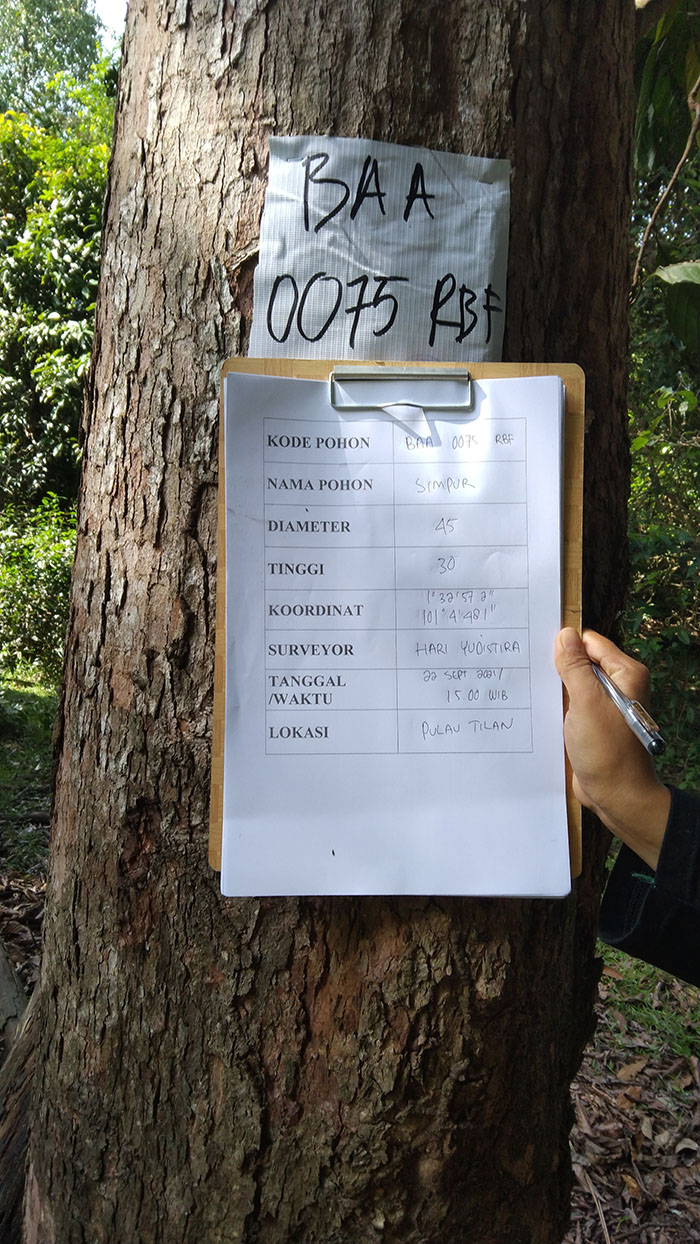 BAA
0075 RBF
KODE POHON BAA 0075 RBF
NAMA POHON SIMPUR
DIAMETER 45
TINGGI 30
KOORDINAT 1° 32' 57 2"
101° 4' 48 1"
SURVEYOR HARI YUDISTIRA
TANGGAL 22 SEPT 2021/
/WAKTU 15 00 WIB
LOKASI PULAU TILAN